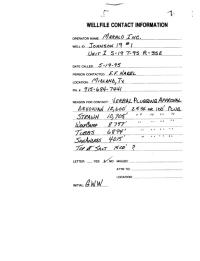 WELLFILE CONTACT INFORMATION
OPERATOR NAME: MERALD INC.
WELL ID: JOHNSON 19 #1
UNIT I S-19 T-9S R-35E
DATE CALLED: 5-19-95
PERSON CONTACTED: E.F. HABEL
LOCATION: MIDLAND, TX
PH. #: 915-684-7441
REASON FOR CONTACT: VERBAL PLUGGING APPROVAL
DEVONIAN 12,600' 25 SX OR 100' PLUG
STRAWN 10,705' " " " " "
WOLFCAMP 8757' " " " " "
TUBBS 6894' " " " " "
SAN ANDRES 4015' " " " " "
TOP OF SALT ?
LETTER: YES NO MAILED
ATTN TO:
LOCATION:
INITIAL: GWW